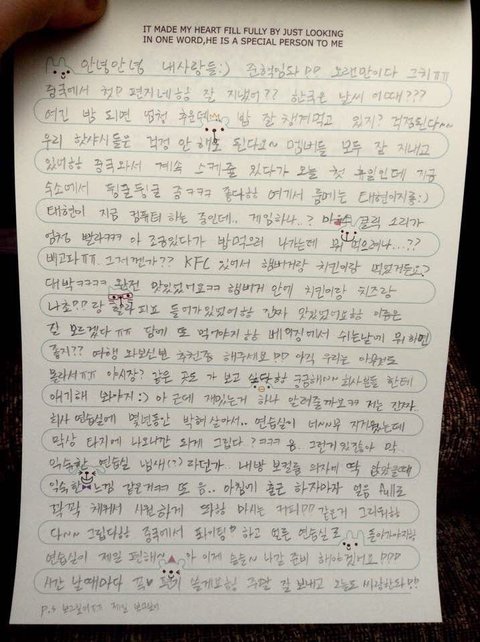 IT MADE MY HEART FILL FULLY BY JUST LOOKING
IN ONE WORD,HE IS A SPECIAL PERSON TO ME
안녕안녕 내사랑들:) 준혁임와 PP 오랜만이다 그치ㅠㅠ
중국에서 첫 편지네하핳 잘 지냈어?? 한국은 날씨 어때???
여긴 밤 되면 엄청 추운데 밥 잘 챙겨먹고 있지? 걱정된다~~
우리 핫샤시들은 걱정 안 해도 된다요~ 멤버들 모두 잘 지내고
있어핳 중국와서 계속 스케줄 있다가 오늘 첫 휴일인데 지금
숙소에서 뒹굴뒹굴 중ㅋㅋㅋ 좋다핳 여기서 룸메는 태현이지롱:)
태현이 지금 컴퓨터 하는 중인데.. 게임하나..? 마우스 클릭 소리가
엄청 빨라ㅋㅋㅋ 아 조금있다가 밥먹으러 나가는데 뭐 먹으려나...??
배고파ㅠㅠ 그저껜가?? KFC 있어서 햄버거랑 치킨이랑 먹었거든요?
대박ㅋㅋㅋㅋ 완전 맛있었어요ㅋㅋ 햄버거 안에 치킨이랑 치즈랑
나초??랑 들어가있었어핳 진짜 맛있었어요핳 이름은
잘 모르겠다ㅠㅠ 담에 또 먹어야지핳 베이징에서 쉬는날에 뭐하면
좋지?? 여행 와보신분 추천좀 해주세요 PP 아직 우리는 아무것도
몰라서ㅠㅠ 야시장? 같은 곳도 가 보고 싶당핳 궁금해 회사분들 한테
얘기해 봐야지:) 아 근데 재밌는거 하나 알려줄까요ㅋㅋ 저는 진짜
회사 연습실에 몇년동안 박혀 살아서.. 연습실이 너~~무 지겨웠는데
막상 타지에 나와있으니까 왜케 그립다?ㅋㅋㅋ 음..그런거있잖아 막
익숙한 연습실 냄새(?)라던가.. 내방 보컬룸 의자에 딱 앉았을때
익숙한 느낌 같은거ㅋㅋ 또 음.. 아침에 출근 하자마자 얼음 full로
꽉꽉 채워서 시원하게 딱핳 마시는 커피PP 같은거 그리워하
다~~ 그립다핳 중국에서 파이팅♡하고 얼른 연습실로 돌아가야지핳
연습실이 제일 편해~ 아 이제 슬슬~ 나갈 준비 해야겠어요 PPP
시간 날때마다 꼭 편지 쓸게요핳 주말 잘 보내고 오늘도 사랑한다!!
P.S 보고싶어ㅠㅠ 제일